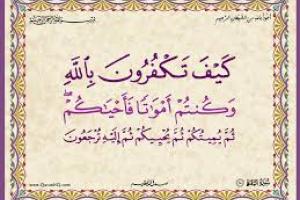 أعوذ بالله من الشيطان الرجيم
كَيْفَ تَكْفُرُونَ بِاللَّهِ
وَكُنتُمْ أَمْوَاتًا فَأَحْيَاكُمْ ۖ
ثُمَّ يُمِيتُكُمْ ثُمَّ يُحْيِيكُمْ ثُمَّ إِلَيْهِ تُرْجَعُونَ
صدق الله العظيم